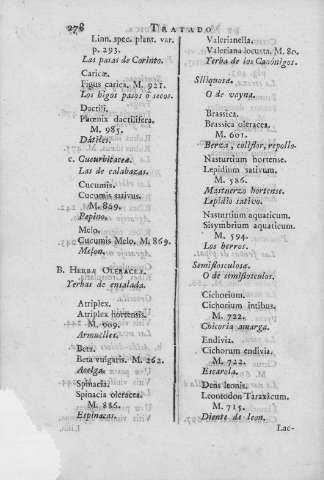 278 TRATADO
Linn. spec. plant. var.
p. 293.
Las pasas de Corinto.
Caricæ.
Figus carica. M. 921.
Los higos pasos ó secos.
Dactili.
Phœnix dactilifera.
M. 985.
Dátiles.
c. Cucurbitaceæ.
Las de calabazas.
Cucumis.
Cucumis sativus.
M. 869.
Pepino.
Melo.
Cucumis Melo. M. 869.
Melon.
B. HERBÆ OLERACEÆ.
Yerbas de ensalada.
Atriplex.
Atriplex hortensis.
M. 909.
Armuelles.
Beta.
Beta vulgaris. M. 262.
Acelga.
Spinacia.
Spinacia oleracea.
M. 886.
Espinacas.
Valerianella.
Valeriana locusta. M. 80.
Yerba de los Canónigos.
Siliquosæ.
O de vayna.
Brassica.
Brassica oleracea.
M. 601.
Berza, coliflor, repollo.
Nasturtium hortense.
Lepidium sativum.
M. 586.
Mastuerzo hortense.
Lepidio sativo.
Nasturtium aquaticum.
Sisymbrium aquaticum.
M. 594.
Los berros.
Semiflosculosæ.
O de semiflosculos.
Cichorium.
Cichorium intibus.
M. 722.
Chicoria amarga.
Endivia.
Cichorum endivia.
M. 722.
Escarola.
Dens leonis.
Leontodon Taraxâcum.
M. 715.
Diente de leon.
Lac-